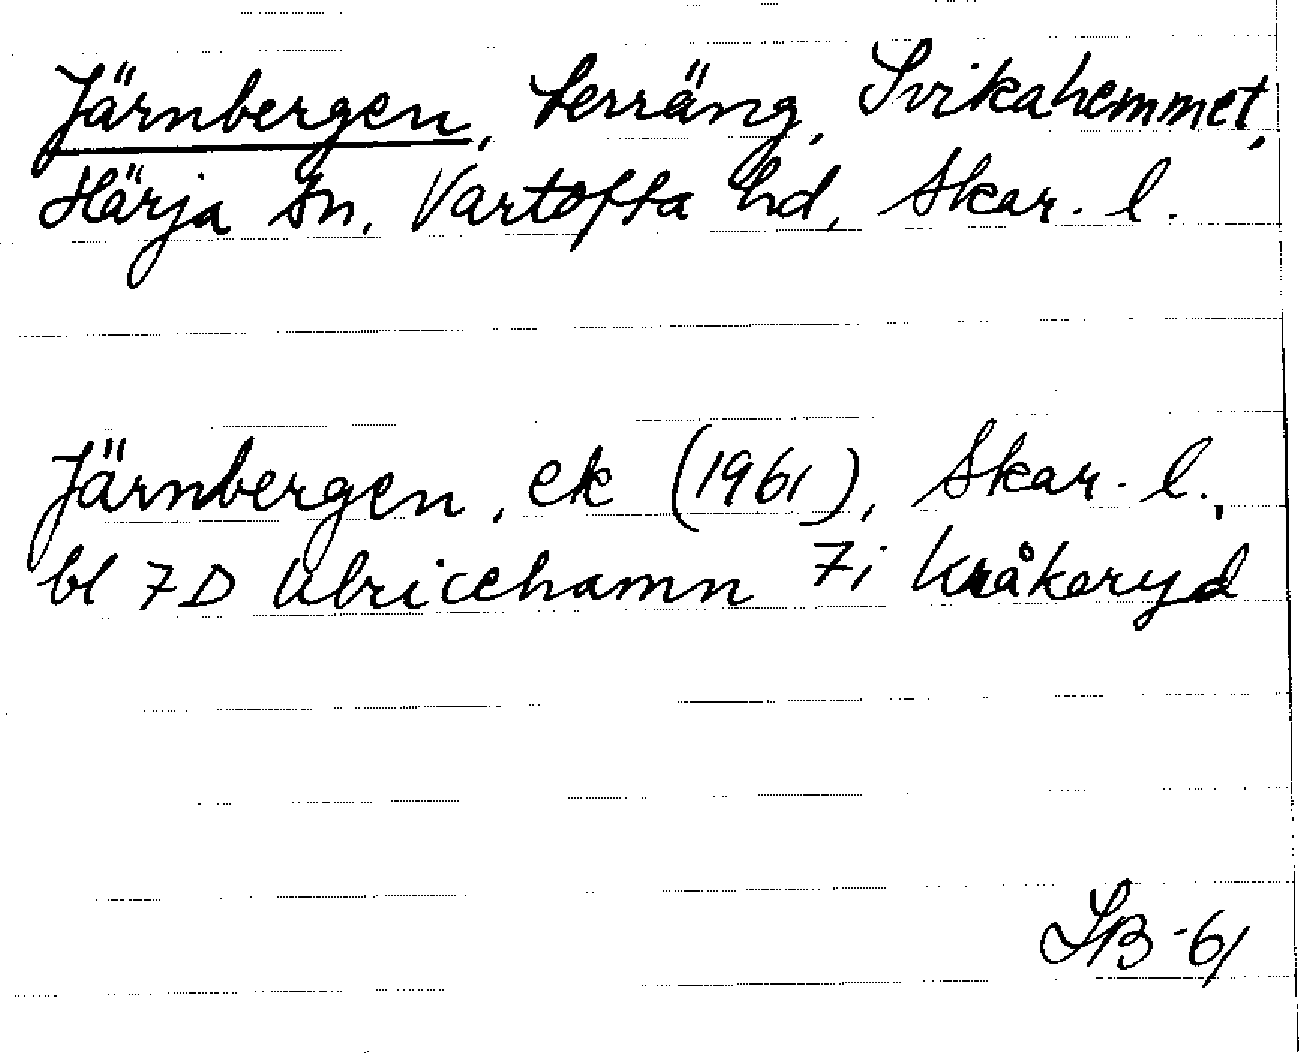 Järnbergen, terräng, Svikahemmet,
Härja sn, Vartofta hd, Skar. l.
Järnbergen, ek (1961), Skar. l.,
bl 7D Ulricehamn 7i Kråkeryd
SB -61